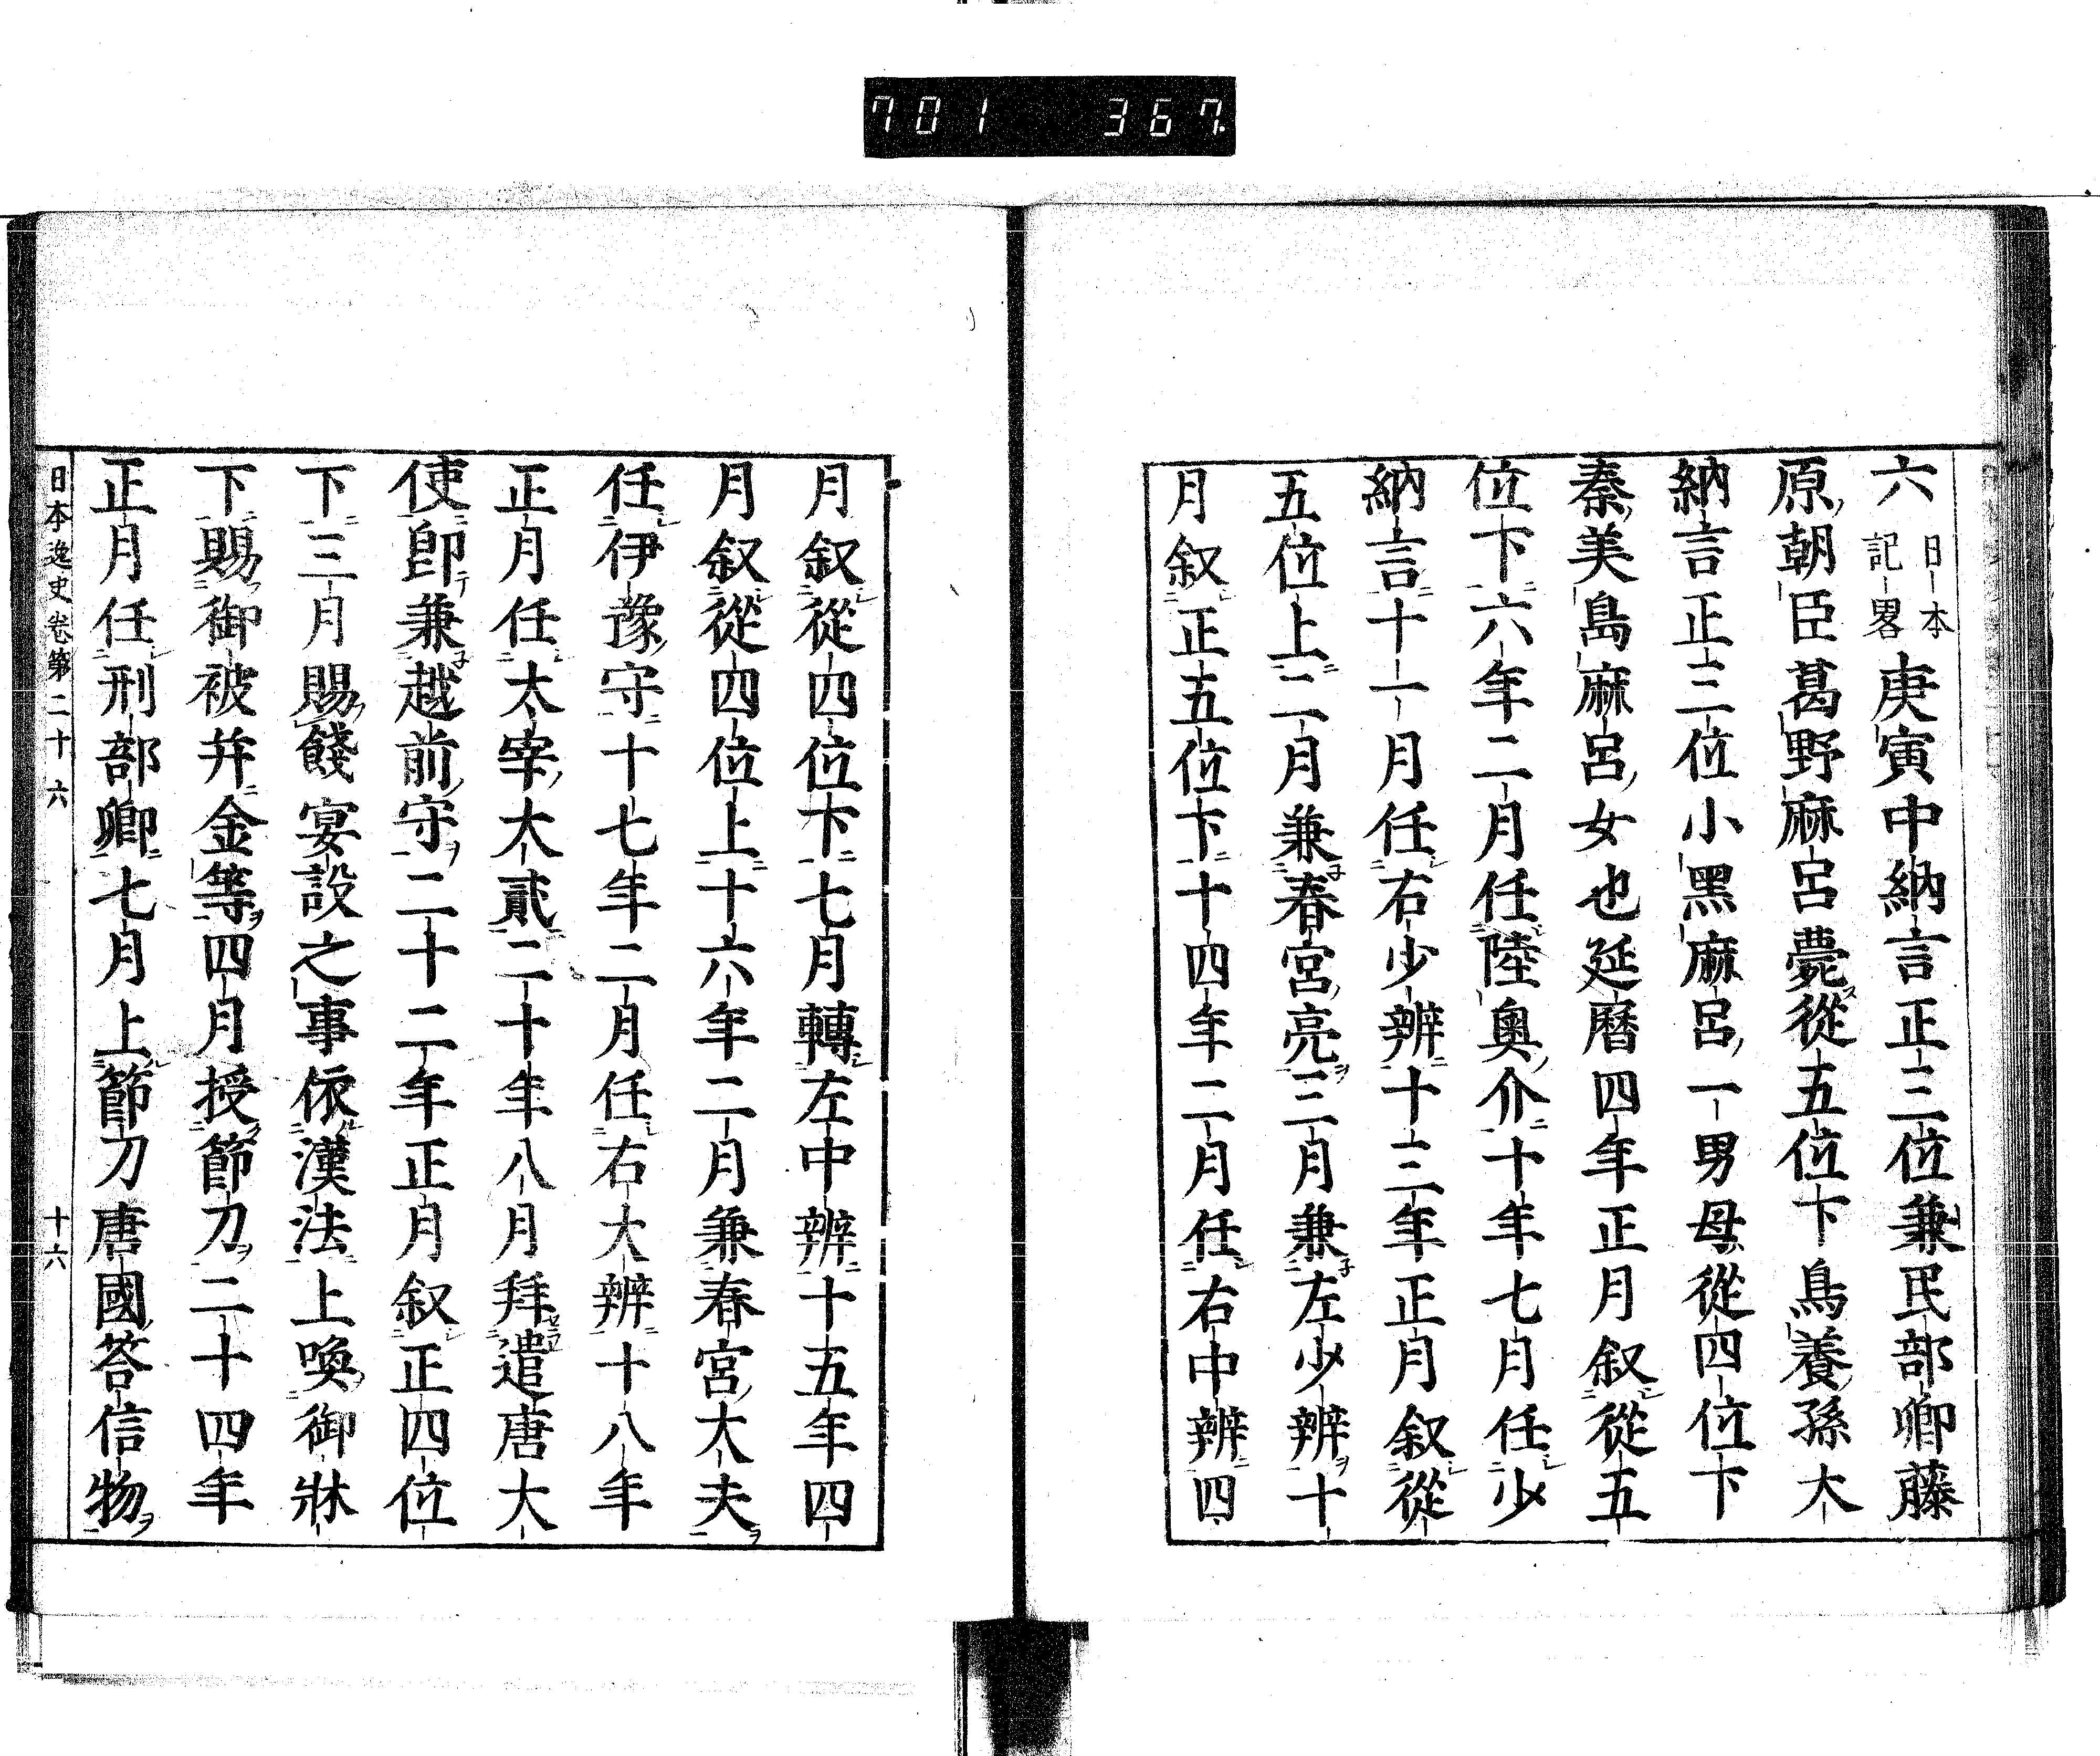 701 367
六 日本記畧 庚寅中納言正三位兼民部卿藤
原朝臣葛野麻呂薨從五位下鳥養孫大
納言正三位小黑麻呂一男母從四位下
秦美島麻呂女也延曆四年正月叙從五
位下六年二月任陸奥介十年七月任少
納言十一月任右少辨十三年正月叙從
五位上二月兼春宮亮三月兼左少辨十
月叙正五位下十四年二月任右中辨四
月叙從四位下七月轉左中辨十五年四
月叙從四位上十六年二月兼春宮大夫
任伊豫守十七年二月任右大辨十八年
正月任太宰大貳二十年八月拜遣唐大
使即兼越前守二十二年正月叙正四位
下三月賜餞宴設之事依漢法上喚御牀
下賜御被并金等四月授節刀二十四年
正月任刑部卿七月上節刀唐國荅信物
日本逸史卷第二十六 十六